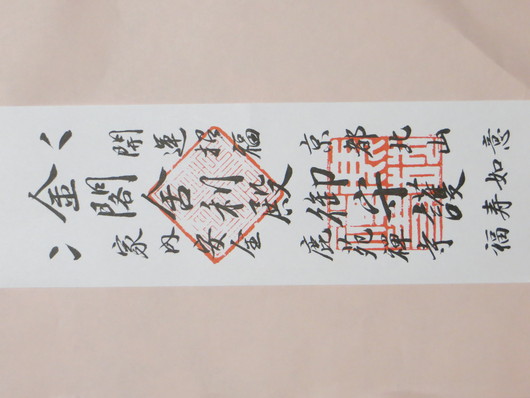 開運招福
金閣舎利殿御守護
家内安全
京都北山
鹿苑禪寺
福寿如意